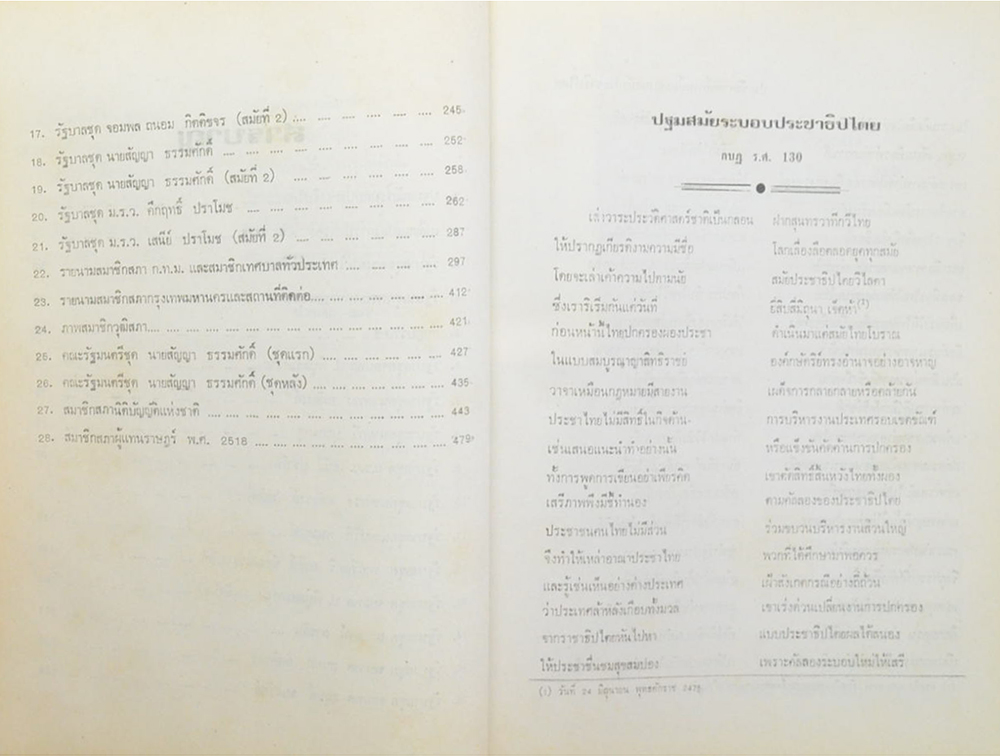 17. รัฐบาลชุด จอมพล ถนอม กิตติขจร (สมัยที่ 2) .... .... .... .... .... .... 245
18. รัฐบาลชุด นายสัญญา ธรรมศักดิ์ .... .... .... .... .... .... .... 252
19. รัฐบาลชุด นายสัญญา ธรรมศักดิ์ (สมัยที่ 2) .... .... .... .... .... 258
20. รัฐบาลชุด ม.ร.ว. คึกฤทธิ์ ปราโมช .... .... .... .... .... .... .... 262
21. รัฐบาลชุด ม.ร.ว. เสนีย์ ปราโมช (สมัยที่ 2) .... .... .... .... .... 287
22. รายนามสมาชิกสภา ก.ท.ม. และสมาชิกเทศบาลทั่วประเทศ .... .... .... .... 297
23. รายนามสมาชิกสภากรุงเทพมหานครและสถานที่ติดต่อ.... .... .... .... .... 412
24. ภาพสมาชิกวุฒิสภา.... .... .... .... .... .... .... .... .... .... 421
25. คณะรัฐมนตรีชุด นายสัญญา ธรรมศักดิ์ (ชุดแรก) .... .... .... .... .... 427
26. คณะรัฐมนตรีชุด นายสัญญา ธรรมศักดิ์ (ชุดหลัง) .... .... .... .... .... 435
27. สมาชิกสภานิติบัญญัติแห่งชาติ .... .... .... .... .... .... .... .... 443
28. สมาชิกสภาผู้แทนราษฎร์ พ.ศ. 2518 .... .... .... .... .... .... .... 479
ปฐมสมัยระบอบประชาธิปไตย
กบฏ ร.ศ. 130
เล่าวาระประวัติศาสตร์ชาติเป็นกลอน ฝากสุนทรวาทีกวีไทย
ให้ปรากฏเกียรติงามความมีชื่อ โลกเลื่องลือตลอดยุคทุกสมัย
โดยจะเล่าเค้าความไปตามนัย สมัยประชาธิปไตยวิไลตา
ซึ่งเราริเริ่มกันแต่วันที่ ยี่สิบสี่มิถุนา เจ็ดห้า(1)
ก่อนหน้านี้ไทยปกครองผองประชา ดำเนินมาแต่สมัยไทยโบราณ
ในแบบสมบูรณาญาสิทธิราชย์ องค์กษัตริย์ทรงอำนาจอย่างอาจหาญ
วาจาเหมือนกฎหมายมีสายงาน เผด็จการกลายกลายหรือคล้ายกัน
ประชาไทยไม่มีสิทธิ์ในกิจด้าน- การบริหารงานประเทศรอบเขตขัณฑ์
เช่นเสนอแนะนำทำอย่างนั้น หรือแข็งขันคัดค้านการปกครอง
ทั้งการพูดการเขียนอย่าเพียรคิด เขาตัดสิทธิ์สิ้นหวังไทยทั้งผอง
เสรีภาพพึงมีชี้ทำนอง ตามคัลลองของประชาธิปไตย
ประชาชนคนไทยไม่มีส่วน ร่วมขบวนบริหารงานส่วนใหญ่
จึงทำให้เหล่าอาณาประชาไทย พวกที่ได้ศึกษามาพอควร
และรู้เช่นเห็นอย่างต่างประเทศ เฝ้าสังเกตกรณีอย่างถี่ถ้วน
ว่าประเทศล้าหลังเกือบทั้งมวล เขาเร่งด่วนเปลี่ยนงานการปกครอง
จากราชาธิปไตยหันไปหา แบบประชาธิปไตยผลได้สนอง
ให้ประชาชื่นชมสุขสมปอง เพราะคัลลองระบอบใหม่ให้เสรี
(1) วันที่ 24 มิถุนายน พุทธศักราช 2475